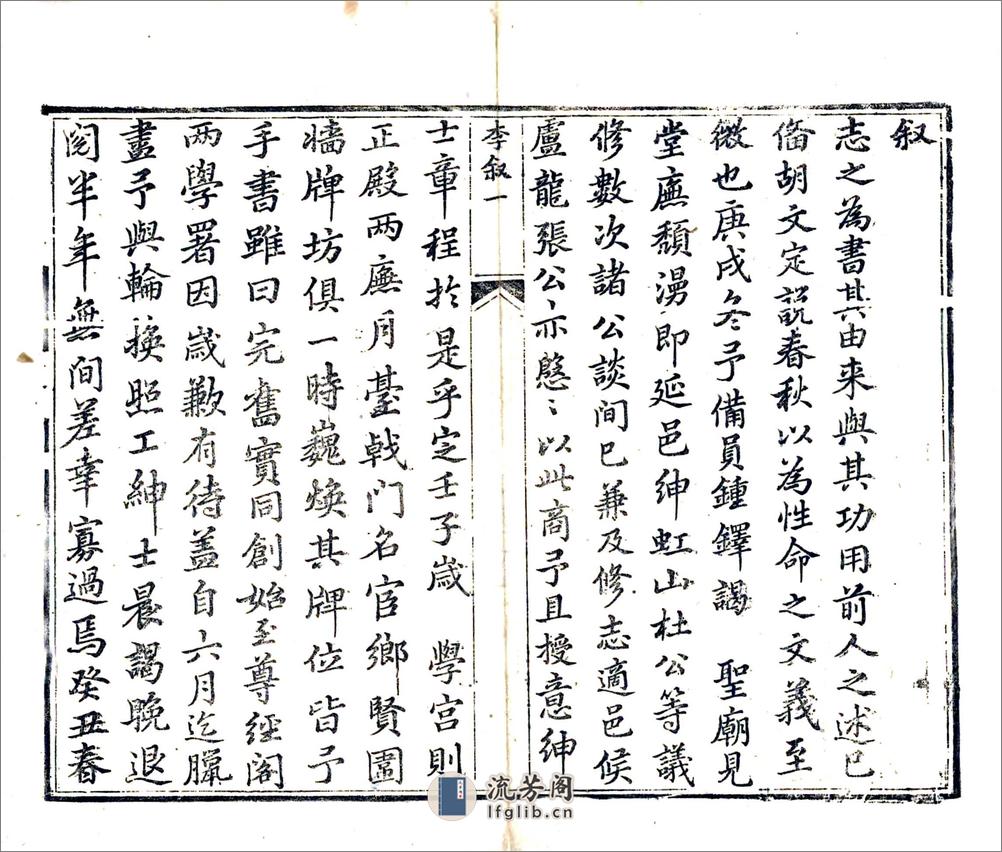 叙
志之為書其由来與其功用前人之述已
俻胡文定説春秋以為性命之文義至
微也庚戌冬予備員鍾鐸謁 聖廟見
堂廡頽漫即延邑紳虹山杜公等議
修數次諸公談間已兼及修志適邑侯
盧龍張公亦慇〻以此商予且授意紳
李叙一
士章程扵是乎定壬子歳 學宫則
正殿两廡月臺戟门名宦鄉賢圍
墙牌坊俱一時巍煥其牌位皆予
手書雖曰完舊實同創始至尊經阁
两學署因歳歉有待盖自六月迄臘
畫予與輪換照工紳士晨謁晚退
閲半年無间差幸寡過焉癸丑春
流芳阁
lfglib.cn